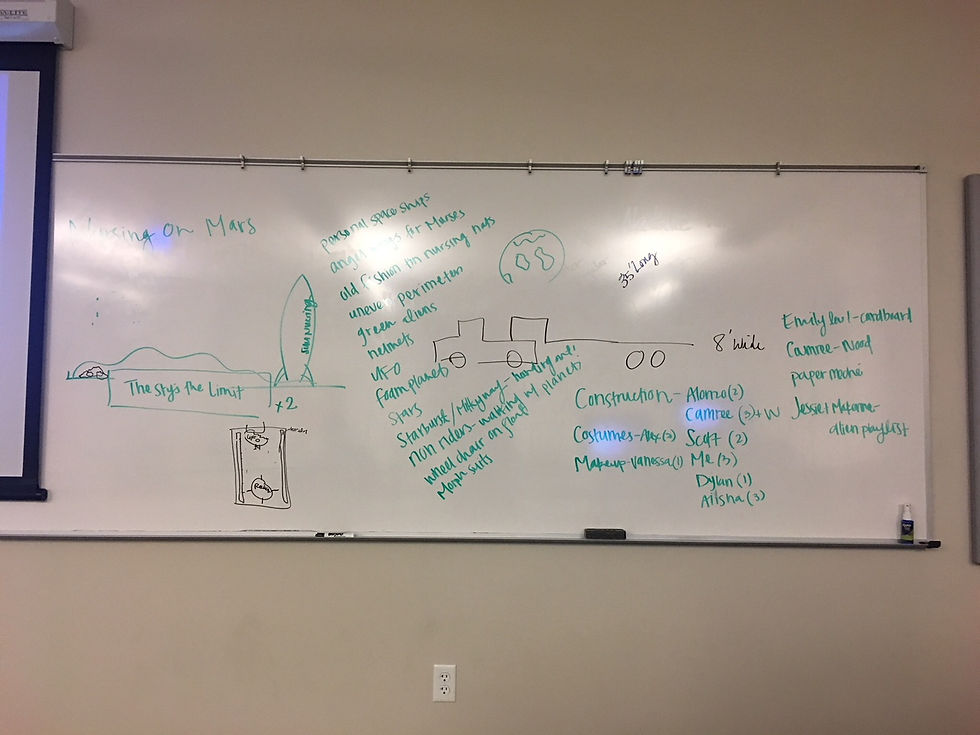 Nursing on Mars
The sky's the Limit
x2
personal space ships
angel wings for nurses
old fashion tin nursing hats
uneven perimeter
green aliens
helmets
UFO
foam planets
stars
Starburst/Milkyway - handing out
non riders - walking w/ planets
wheel chair on float
Morph suits
35' Long
8' wide
Construction - Alonzo (2)
Camree (3) + W
Costumes - Alex (2)
Scott (2)
Makeup - Vanessa (1)
Me (3)
Dylan (1)
Ailsha (3)
Emily - cardboard
Camree - Wood
paper mache
Jessie + Makenna -
alien playlist